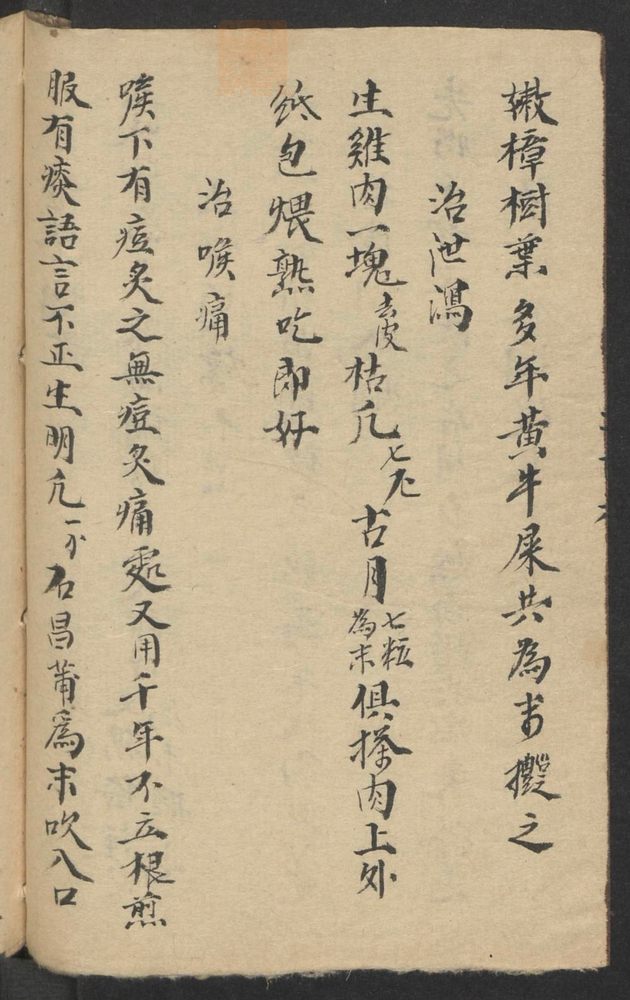 嫩樟樹葉多年黃牛屎共為末擬之
治泄瀉
生雞肉一塊去皮枯凡七尺古月七粒為末俱搽肉上外
紙包煨熟吃即好
治喉痛
喉下有痘炙之無痘炙痛處又用千年不立根煎
服有痰語言不正生明凡一分石昌蒲為末吹入口